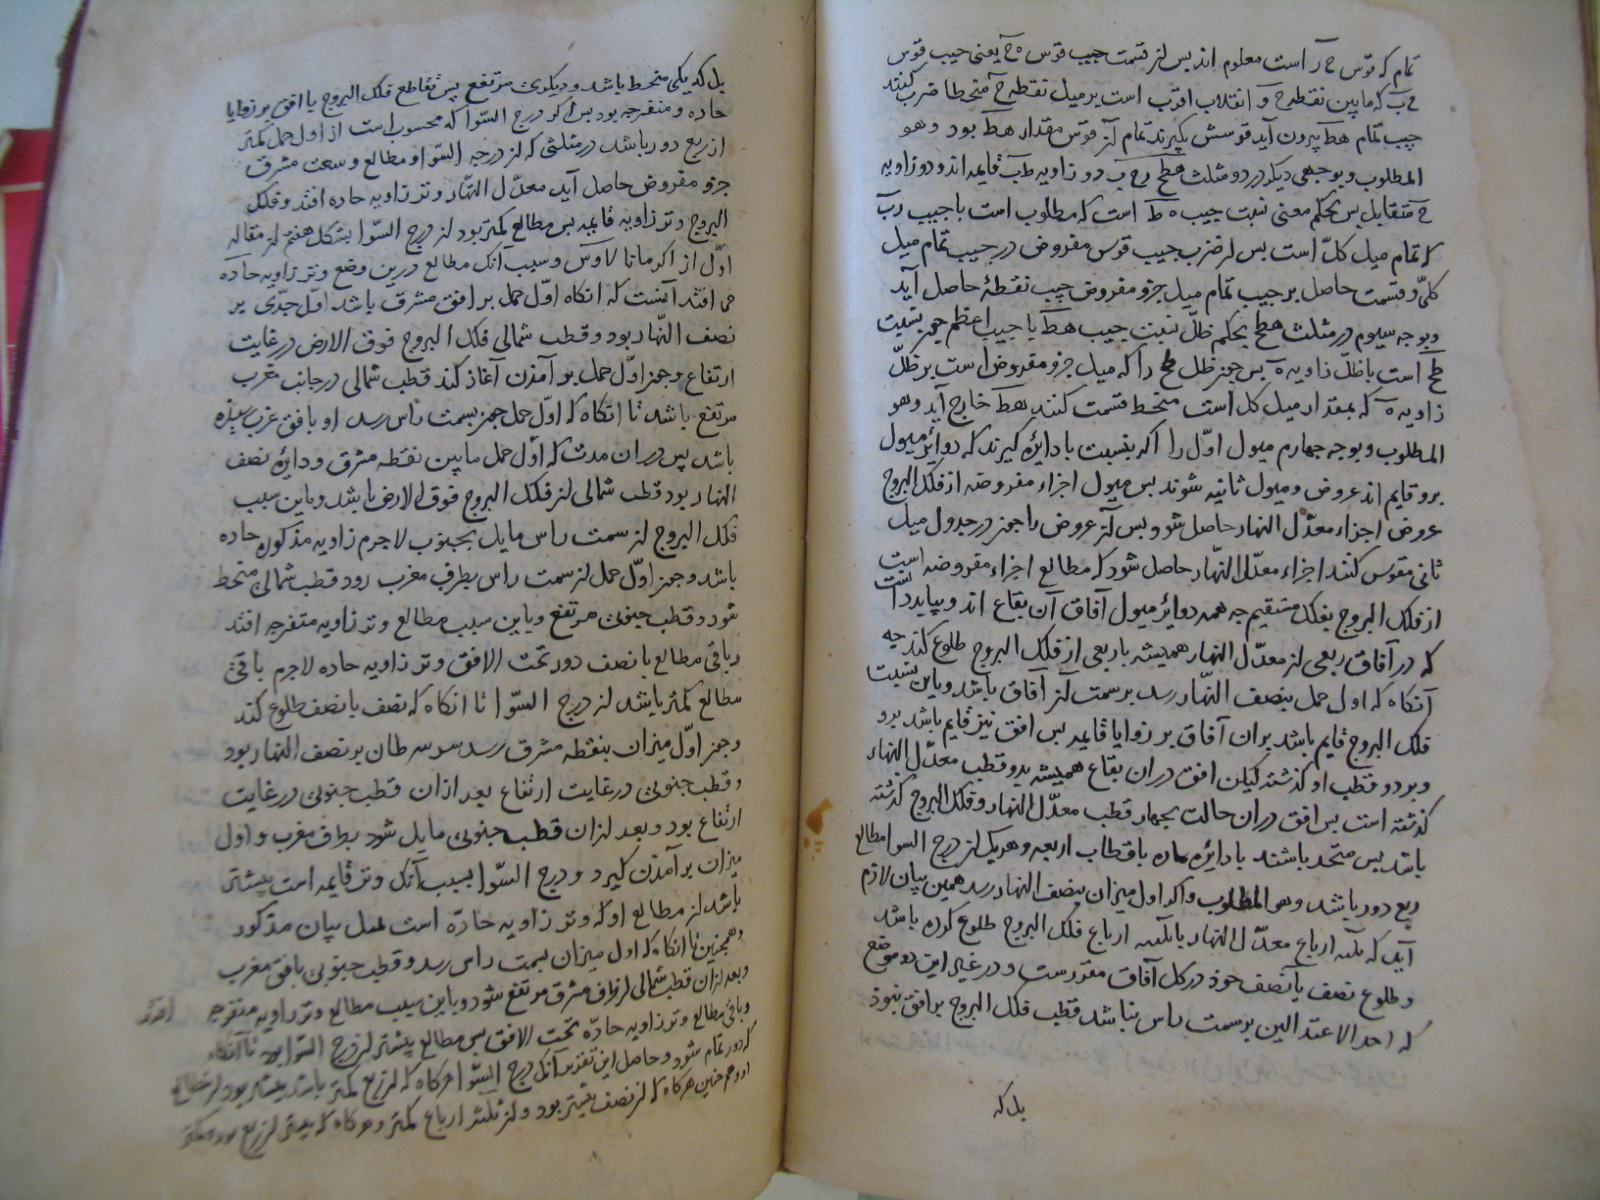 تمام که قوس ح ر است معلوم اند پس از قسمت جیب قوس ه ح یعنی جیب قوس
ح ب که مابین نقطه ح و انقلاب اقرب است بر میل نقطه ح منحطا ضرب کنند
جیب تمام هط بیرون آید قوسش بگیرند تمام آن قوس مقدار هط بود وهو
المطلوب و بوجهی دیگر در دو مثلث هطح رح ب دو زاویه ط ب قایمه اند و دو زاویه
ح متقابل پس بحکم مغنی نسبت جیب ه ط است که مطلوب است با جیب رب
که تمام میل کلّ است پس از ضرب جیب قوس مفروض در جیب تمام میل
کلّی و قسمت حاصل بر جیب تمام میل جزو مفروض جیب نقطهٔ حاصل آید
وبوجه سیوم در مثلث هطح بحکم ظلّی نسبت جیب هط با جیب اعظم چون نسبت
طح است با ظلّ زاویه ه پس چون ظل طح را که میل جزو مفروض است بر ظلّ
زاویه ه که بمقدار میل کل است منحط قسمت کنند هط خارج آید وهو
المطلوب و بوجه چهارم میول اوّل را اکه بنسبت با دایرۀ گیرند که دوائر میول
برو قایم اند عروض و میول ثانیه شوند پس میول اجزاء مفروضه از فلک البروج
عروض اجزاء معدّل النهار حاصل شود پس آن عروض را چون در جدول میل
ثانی مقوس کنند اجزاء معدّل النّهار حاصل شود که مطالع اجزاء مفروضه است
از فلک البروج بفلک مستقیم چه همه دوائر میول آفاق آن بقاع اند و بباید دانست
که در آفاق ربعی از معدّل النهار همیشه با ربعی از فلک البروج طلوع کند چه
آنگاه که اول حمل بنصف النّهار رسد بر سمت آن آفاق باشد و باین نسبت
فلک البروج قایم باشد بران آفاق بر زوایا قایمه پس افق نیز قایم باشد برو
و بر دو قطب او گذشته لیکن افق دران بقاع همیشه بدو قطب معدّل النهار
گذشته است پس افق دران حالت بچهار قطب معدّل النهار و فلک البروج گذشته
باشد پس متحد باشند با دایرۀ ماره باقطاب اربعه و هریک از درج السوا مطالع
ربع دور باشد وهو المطلوب واگر اول میزان بنصف النهار رسد همین بیان لازم
آید که ثلثه ارباع معدّل النهار با ثلثه ارباع فلک البروج طلوع کرده باشد
و طلوع نصف با نصف خود در کل آفاق مقررست و در غیر این دو موضع
که احد الاعتدالین بر سمت راس نباشد قطب فلک البروج بر افق نبود
بل که
بل که یکی منحط باشد و دیگری مرتفع پس تقاطع فلک البروج با افق بر زوایا
حاده و منفرجه بود پس اگر درج السّوا که محسوب است از اول حمل کمتر
از ربع دور باشد در مثلثی که از درجه السّوا و مطالع و سعت مشرق
جزو مفروض حاصل آید معدّل النّهار وتر زاویه حاده افتد و فلک
البروج وتر زاویه قایمه پس مطالع کمتر بود از درج السّوا بشکل هفتم از مقاله
اوّل از اکر مانالاوس و سبب آنک مطالع درین وضع وتر زاویه حاده
می افتد آنست که انگاه اوّل حمل بر افق مشرق باشد اوّل جدّی بر
نصف النّهار بود و قطب شمالی فلک البروج فوق الارض در غایت
ارتفاع و چون اوّل حمل بر آمدن آغاز کند قطب شمالی در جانب مغرب
مرتفع باشد تا انگاه که اوّل حمل چون بسمت راس رسد او بافق غرب رسیده
باشد پس دران مدت که اوّل حمل مابین نقطه مشرق و دایرۀ نصف
النهار بود قطب شمالی از فلک البروج فوق الارض باشد و باین سبب
فلک البروج از سمت راس مایل بجنوب لاجرم زاویه مذکوره حاده
باشد و چون اوّل حمل از سمت راس بطرف مغرب رود قطب شمالی منحط
شود و قطب جنوبی مرتفع و باین سبب مطالع وتر زاویه منفرجه افتد
و باقی مطالع با نصف دور تحت الافق وتر زاویه حاده لاجرم باقی
مطالع کمتر باشد از درج السّوا تا انگاه که نصف با نصف طلوع کند
و چون اوّل میزان بنقطه مشرق رسد سر سرطان بر نصف النهار بود
و قطب جنوبی در غایت ارتفاع بعد ازان قطب جنوبی در غایت
ارتفاع بود و بعد ازان قطب جنوبی مایل شود بطرف مغرب و اول
میزان بر آمدن گیرد و درج السّوا بسبب آنک وتر قایمه است بیشتر
باشد از مطالع او که وتر زاویه حادّه است لمثل بیان مذکور
وهمچنین تا انگاه که اول میزان بسمت راس رسد و قطب جنوبی بافق مغرب
وبعد ازان قطب شمالی از افق مشرق مرتفع شود و باین سبب مطالع وتر زاویه منفرجه افتد
و باقی مطالع وتر زاویه حادّه تحت الافق پس مطالع بیشتر از درج السّوا بود تا آنگاه
که دور تمام شود و حاصل این تقدیر آنک درج السّوا هرگاه که از ربع کمتر باشد بیشتر بود از مطالع
او و همچنین هرگاه که از نصف بیشتر بود و از ثلثه ارباع کمتر و هرگاه که بیشتر از ربع بود